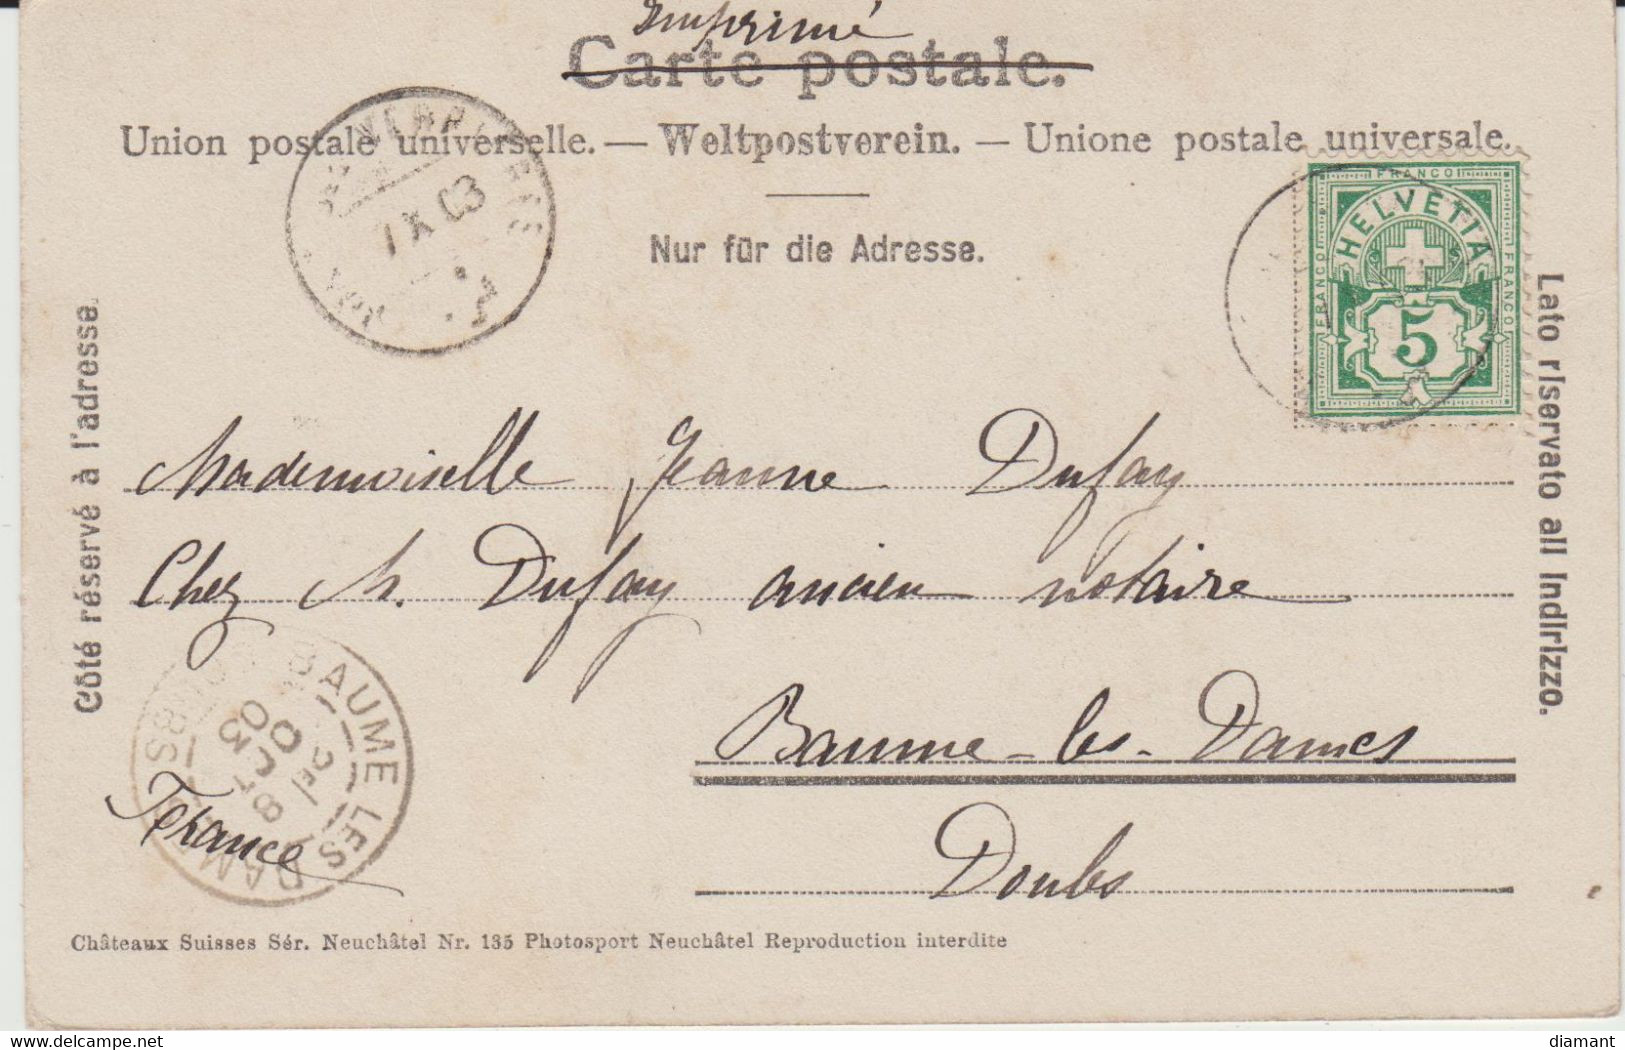 Imprimé
Carte postale.
Union postale universelle. — Weltpostverein. — Unione postale universale.
Nur für die Adresse.
Côté réservé à l'adresse.
Lato riservato all Indirizzo.
VERRIERES
7 X 03
FRANCO
FRANCO
FRANCO
HELVETIA
5
Mademoiselle Jeanne Dufay
Chez M. Dufay ancien notaire
Baume-les-Dames
Doubs
France
BAUME LES DAMES
8 OCT 03
Châteaux Suisses Sér. Neuchâtel Nr. 135 Photosport Neuchâtel Reproduction interdite
diamant